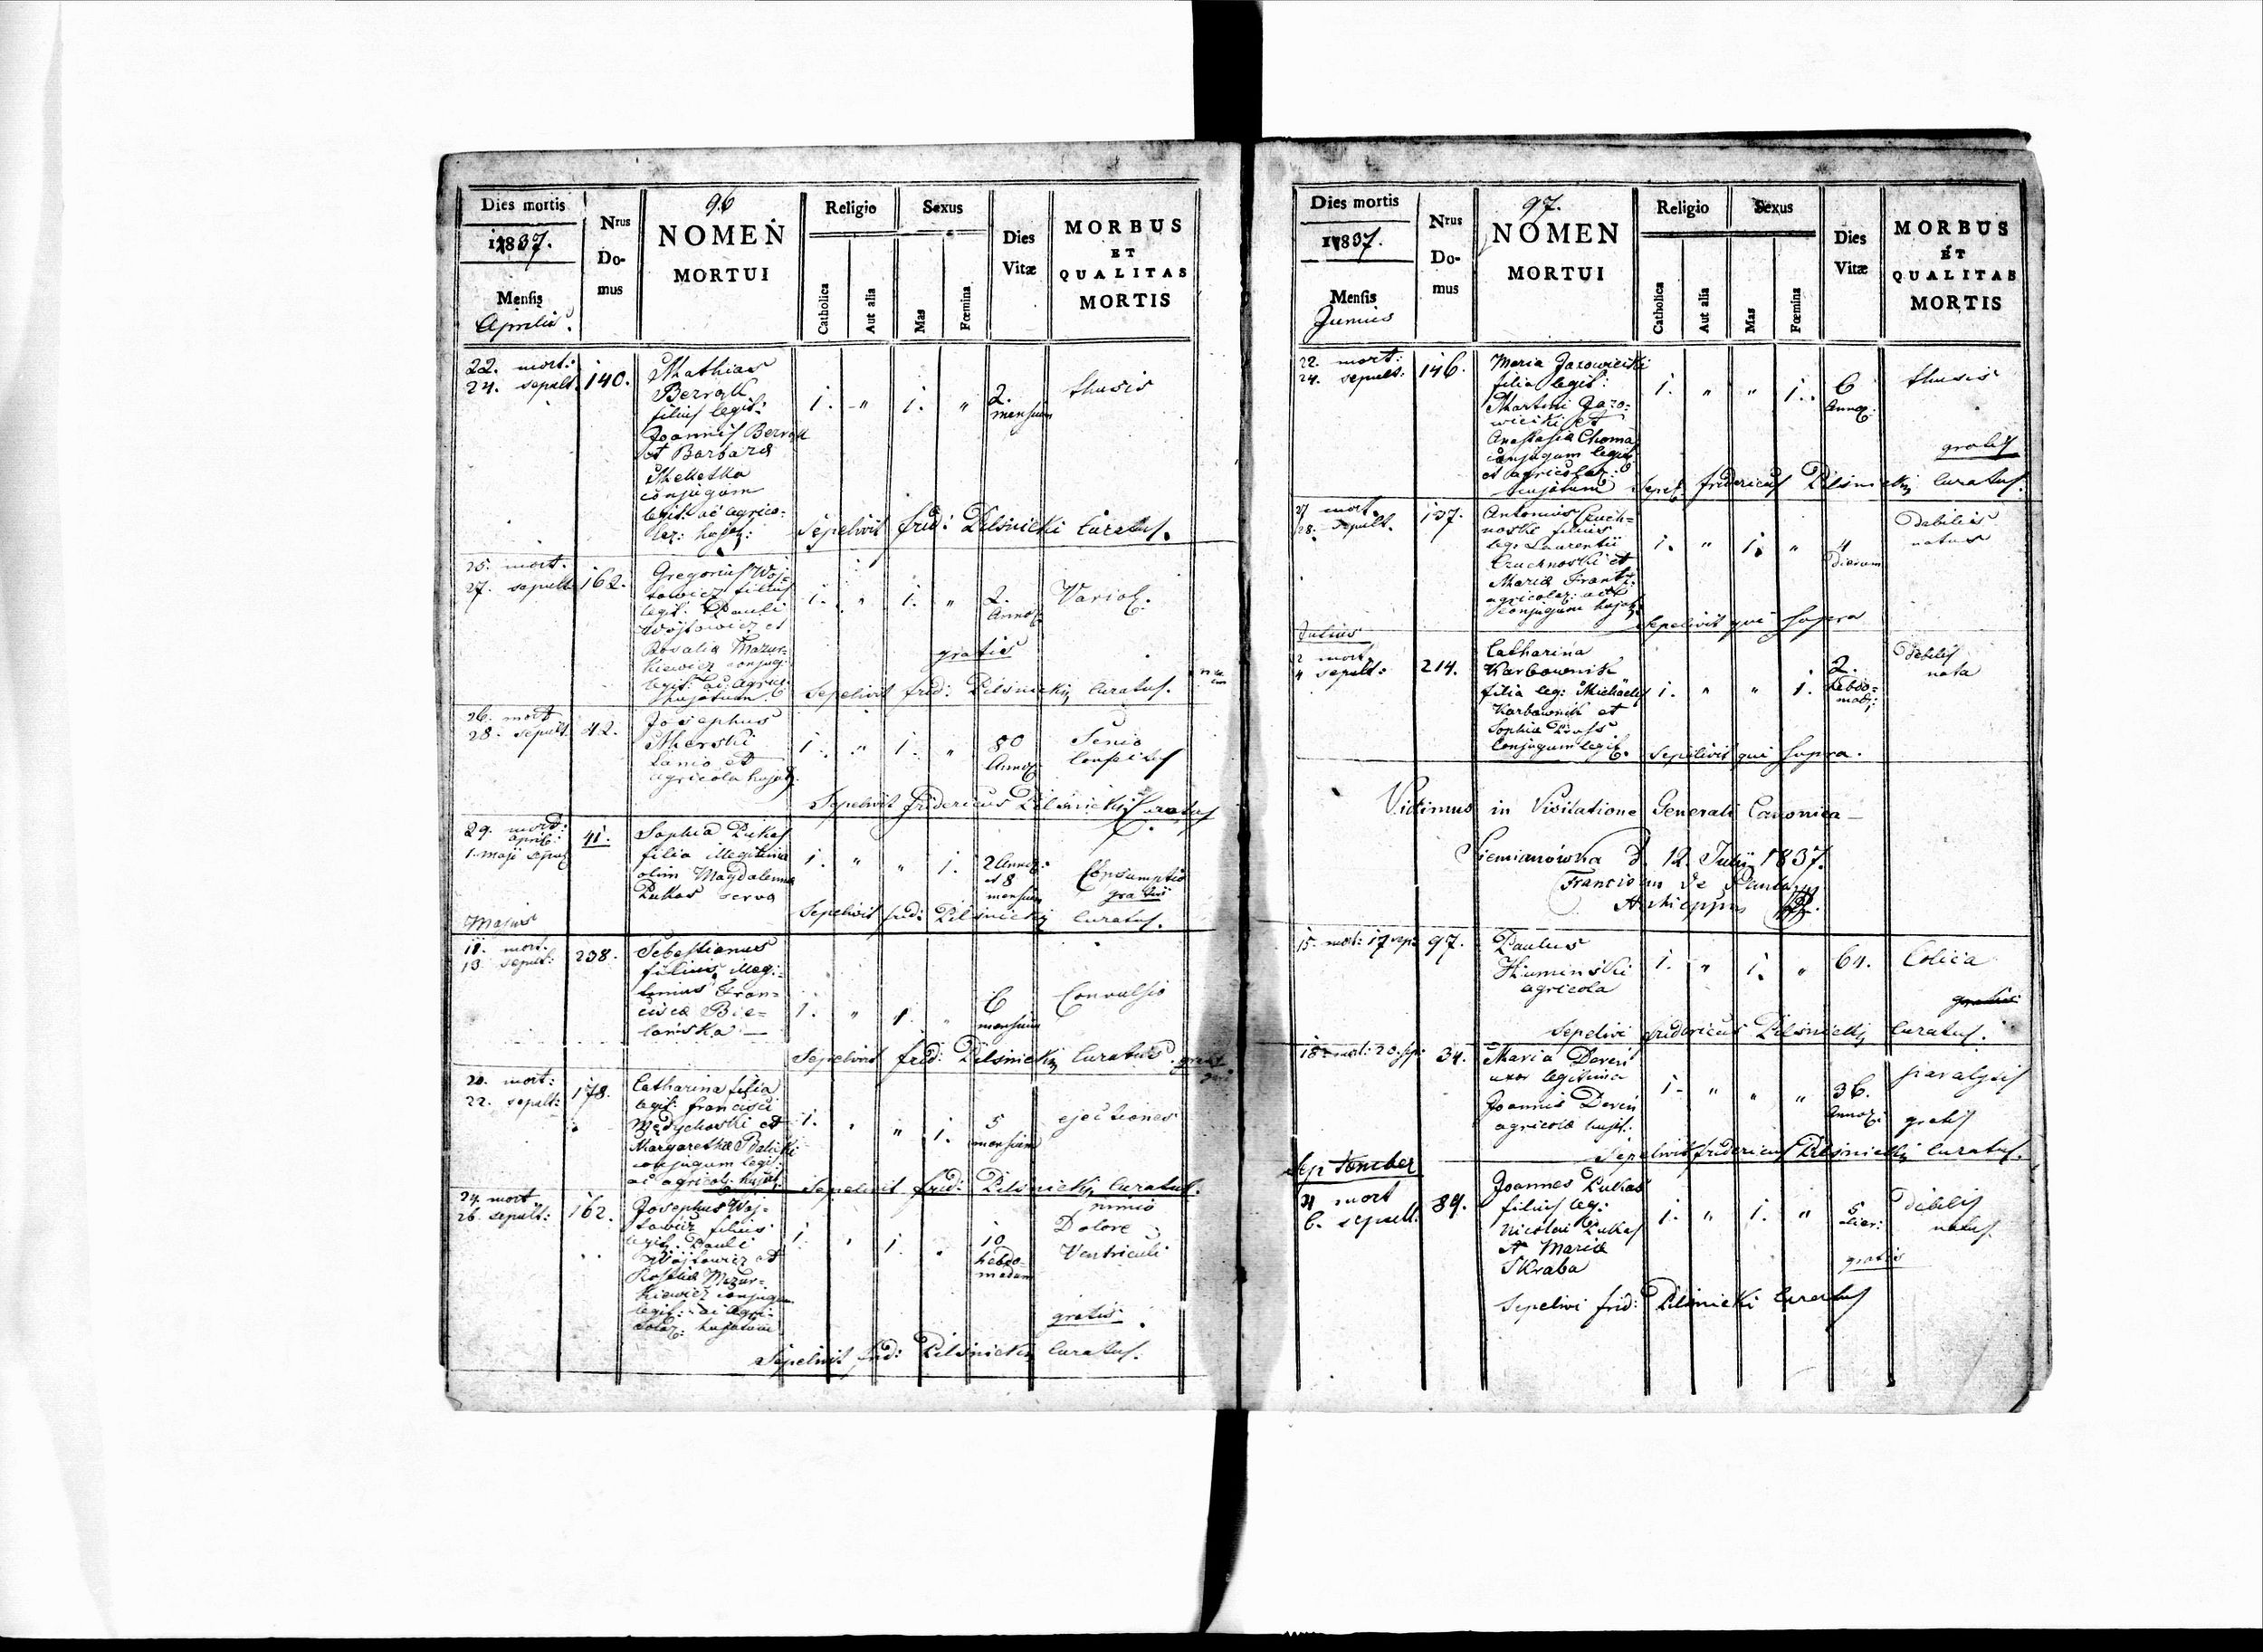 96
Dies mortis
1837.
Mensis
Aprilis.
Nrus Do-mus
NOMEN
MORTUI
Religio
Catholica
Aut alia
Sexus
Mas
Fœmina
Dies
Vitæ
MORBUS
ET
QUALITAS
MORTIS
22. mort:
24. sepult. 140.
Mathias
filius legit:
Joannis
et Barbara
conjugum
legit: ac agrico-
lar: hujat:
1. " 1. "
2.
mensium
thusis
Sepelivit frid: Pilsnicki Curatus.
25. mort.
27. sepult. 162.
Gregorius Woj-
towicz filius
legit: Pauli
Wojtowicz et
Rosalia Mazur-
kiewicz conjug:
legit: ac Agric:
hujatum.
1. " 1. "
2.
Annor:
Variol:
gratis
Sepelivit frid: Pilsnickij Curatus.
26. mort
28. sepult. 42.
Josephus
Lanio et
agricola hujat:
1. " 1. "
80
Annor:
Senio
Confectus
Sepelivit fridericus Pilsnickij Curatus
29. mort:
april:
1. Maji sepul: 41.
Sophia Lukas
filia illegitima
olim Magdalenna
Lukas serva
1. " " 1.
2 Annor:
et 8
mensium
Consumptio
gratis
Sepelivit frid: Pilsnickij Curatus.
Majus
11. mort.
13. sepult: 238.
Sebestianus
filius illegi-
timus Fran-
cisca Bie-
lańska
1. " 1. "
6
mensium
Convulsio
Sepelivit frid: Pilsnickij Curatus.
20. mort:
22. sepult: 178.
Catharina filia
legit: francisci
Mędychoski et
Margaretha
conjugum legit:
ac agricol: hujat:
1. " " 1.
5
mensium
ejectiones
Sepelivit frid: Pilsnickij Curatus.
24. mort
26. sepult: 162.
Josephus Woj-
towicz filius
legit: Pauli
Wojtowicz et
Rosalia Mazur-
kiewicz conjugum
legit: ac Agri-
colar: hujatum
1. " 1. "
10
hebdo-
madum
nimio
Dolore
Ventriculi
gratis.
Sepelivit frid: Pilsnickij Curatus.
97.
Dies mortis
1837.
Mensis
Junius
Nrus Do-mus
NOMEN
MORTUI
Religio
Catholica
Aut alia
Sexus
Mas
Fœmina
Dies
Vitæ
MORBUS
ET
QUALITAS
MORTIS
22. mort:
24. sepult: 146.
Maria Jazowiecki
filia legit:
Martini Jazo-
wiecki et
Anastasia Choma
conjugum legit:
et agricolar:
hujatum
1. " " 1.
6
Annor:
thusis
gratis
Sepel: fridericus Pilsnickij Curatus.
27 mort.
28. sepult. 137.
Antonius
filius
leg: Laurentii
et
Maria Frantz
agricolar: ac
conjugum hujat:
1. " 1. "
4
Dierum
Debilis
natus
Sepelivit qui supra
Julius
2 mort.
4 sepult: 214.
Catharina
Karbownik
filia leg: Michaelis
Karbownik et
Sophia
Conjugum legit.
1. " " 1.
2.
hebdo-
mad:
Debilis
nata
Sepelivit qui supra.
Vidimus in Visitatione Generali Canonica
Siemianówka d. 12 Julij 1837.
Franciscus de Paula
Archieppus
15. mort: 17 sep: 97.
Paulus
Kuminski
agricola
1. " 1. "
64.
Colica
gratis
Sepelivi fridericus Pilsnickij Curatus.
18. mort: 20. sep: 34.
Maria Dereń
uxor legitima
Joannis Dereń
agricola hujat:
1. " " "
36.
Annor:
paralysis
gratis
Sepelivit fridericus Pilsnickij Curatus.
September
4 mort
6. sepult. 89.
Joannes Lukas
filius leg:
Nicolai Lukas
et Maria
Skraba
1. " 1. "
5
dier:
Debilis
natus
gratis
Sepelivi frid: Pilsnicki Curatus